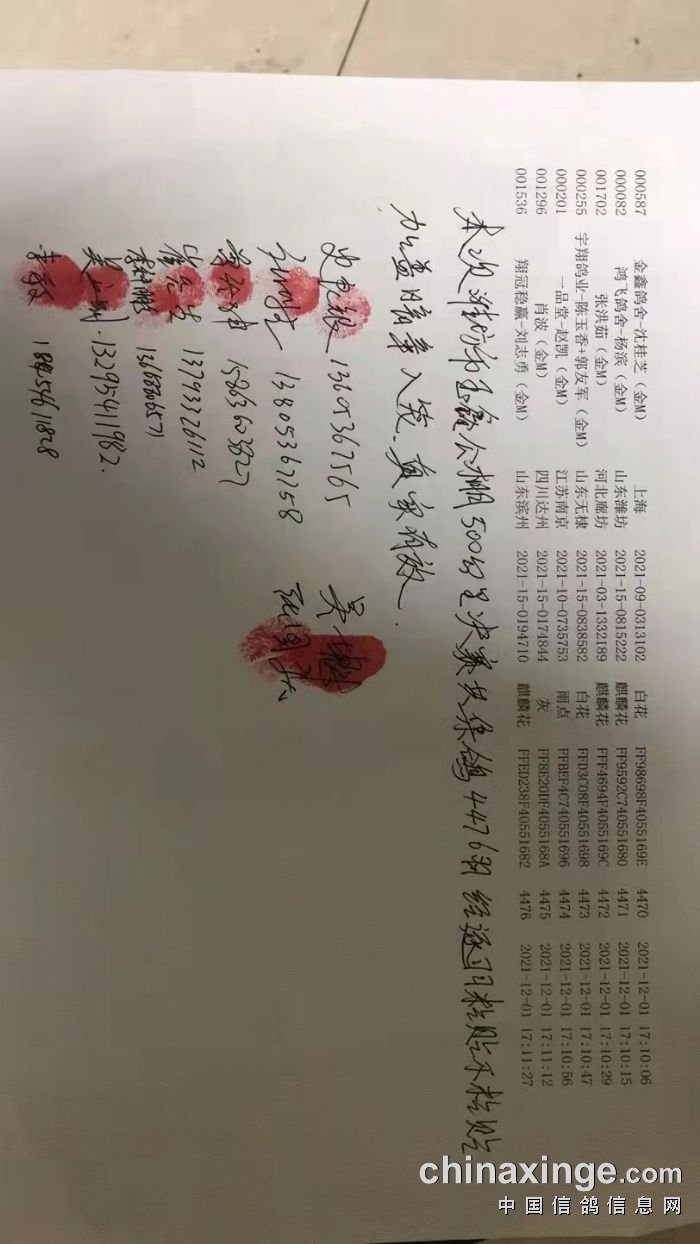 000587 金鑫鸽舍-沈桂芝(金M) 上海 2021-09-0313102 白花 FF98698F4055169E 4470 2021-12-01 17:10:06
000082 鸿飞鸽舍-杨滨(金M) 山东潍坊 2021-15-0815222 麒麟花 FF9592C740551680 4471 2021-12-01 17:10:15
001702 张洪茹(金M) 河北廊坊 2021-03-1332189 麒麟花 FFF4694F4055169C 4472 2021-12-01 17:10:29
000255 宇翔鸽业-陈玉香+郭友军(金M) 山东无棣 2021-15-0838582 白花 FFD3C08F40551698 4473 2021-12-01 17:10:47
000201 一品堂-赵凯(金M) 江苏南京 2021-10-0735753 雨点 FFBEF4C740551696 4474 2021-12-01 17:10:56
001296 肖波(金M) 四川达州 2021-15-0174844 灰 FF8E20DF4055168A 4475 2021-12-01 17:11:12
001536 翔冠稳赢-刘志勇(金M) 山东滨州 2021-15-0194710 麒麟花 FFED238F40551682 4476 2021-12-01 17:11:27
本次潍坊市 公棚500公里决赛共集鸽4476羽 经逐羽粘贴不粘贴
加盖暗章入笼.真实有效.
13605367565
13805367758
15863603827
13793326112
13668806571
13295411982.
李
chinaxinge.com
中国信鸽信息网